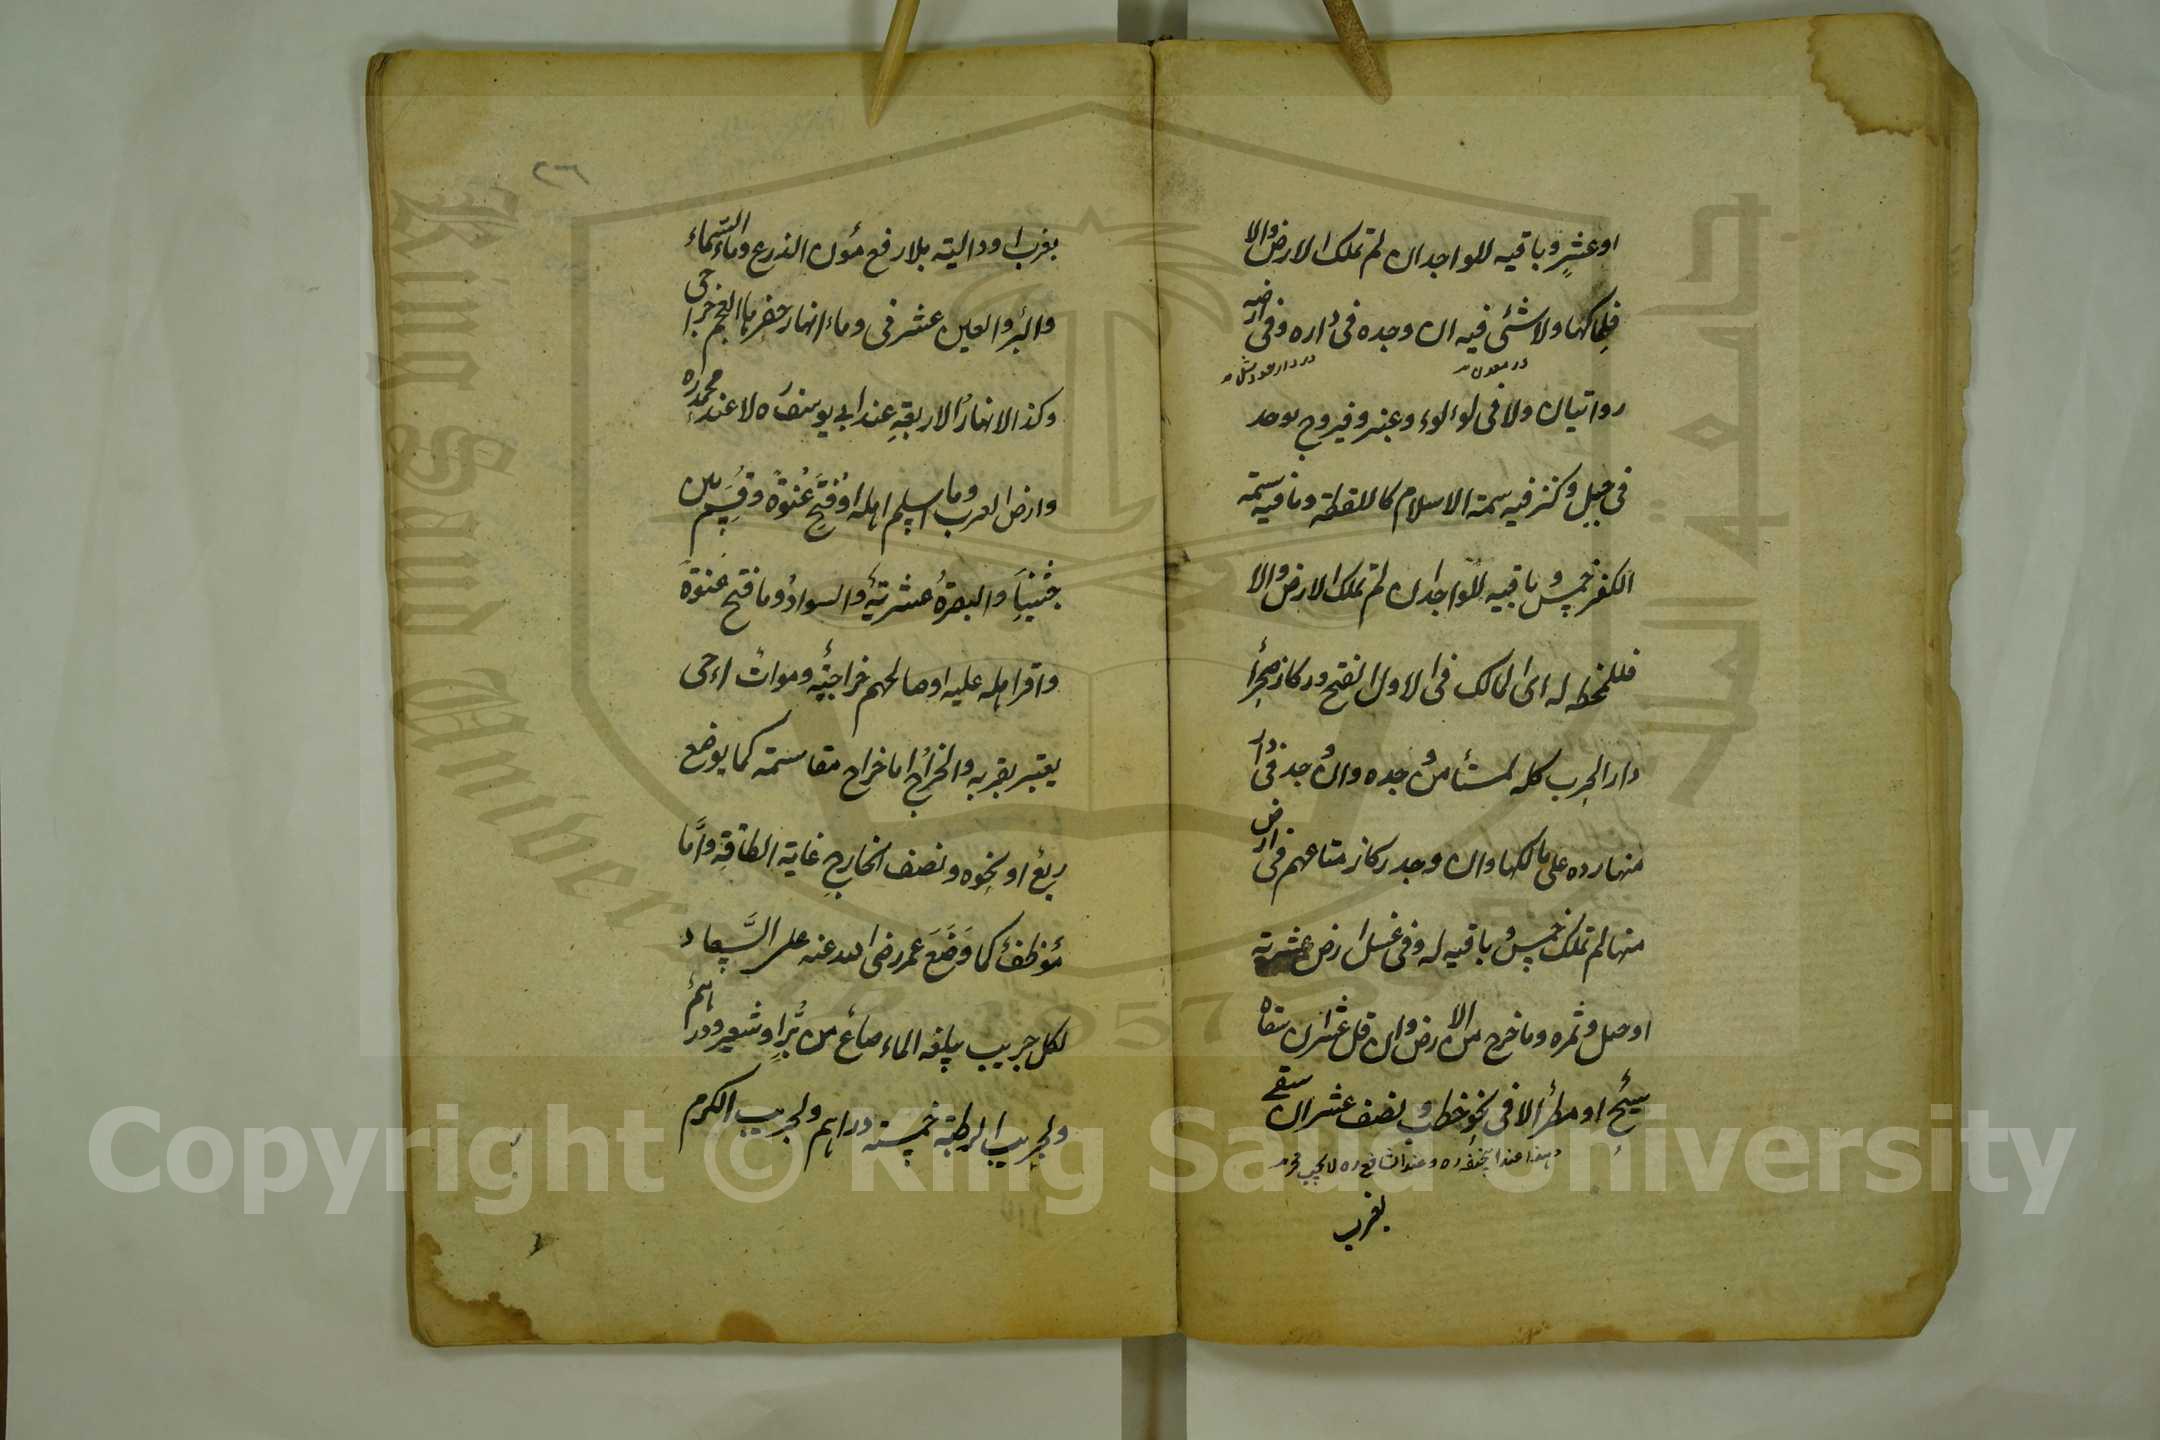 او عشر وباقيه للواجد ان لم تملك الارض والا
فلمالكها ولا شئ فيه ان وجده في داره وفي ارضه
روايتان ولا في لؤلوء وعنبر وفيروزج يوجد
في جبل وكنز فيه سمة الاسلام كاللقطة وما فيه سمة
الكفر خمس وباقيه للواجد ان لم تملك الارض والا
فللمختط له اى المالك في اول الفتح وركاز صحراء
دار الحرب كله لمستأمن وجده وان وجد في دار
منها رده على مالكها وان وجد ركاز متاعهم في ارض
منها لم تملك خمس وباقيه له وفي عسل ارض عشرية
او جبل وثمره وما خرج من الارض وان قل عشر ان سقاه
سيح او مطر الا في نحو حطب ونصف عشر ان سقي
بغرب
٢٦٦
بغرب او دالية بلا رفع مؤن الزرع وماء السماء
والبئر والعين عشري وماء انهار حفرها العجم خراجي
وكذا الانهار الاربعة عند ابي يوسف ره لا عند محمد ره
وارض العرب وما اسلم اهله او فتح عنوة وقسم بين
جيشنا والبصرة عشرية والسواد وما فتح عنوة
واقر اهله عليه او صالحهم خراجية وموات احي
يعتبر بقربه والخراج اما خراج مقاسمة كما يوضع
ربع او نحوه ونصف الخارج غاية الطاقة واما
مؤظف كما وضع عمر رضي الله عنه على السواد
لكل جريب يبلغه الماء صاع من بر او شعير ودراهم
ولجريب الرطبة خمسة دراهم ولجريب الكرم
Copyright © King Saud University
King Saud University
1957